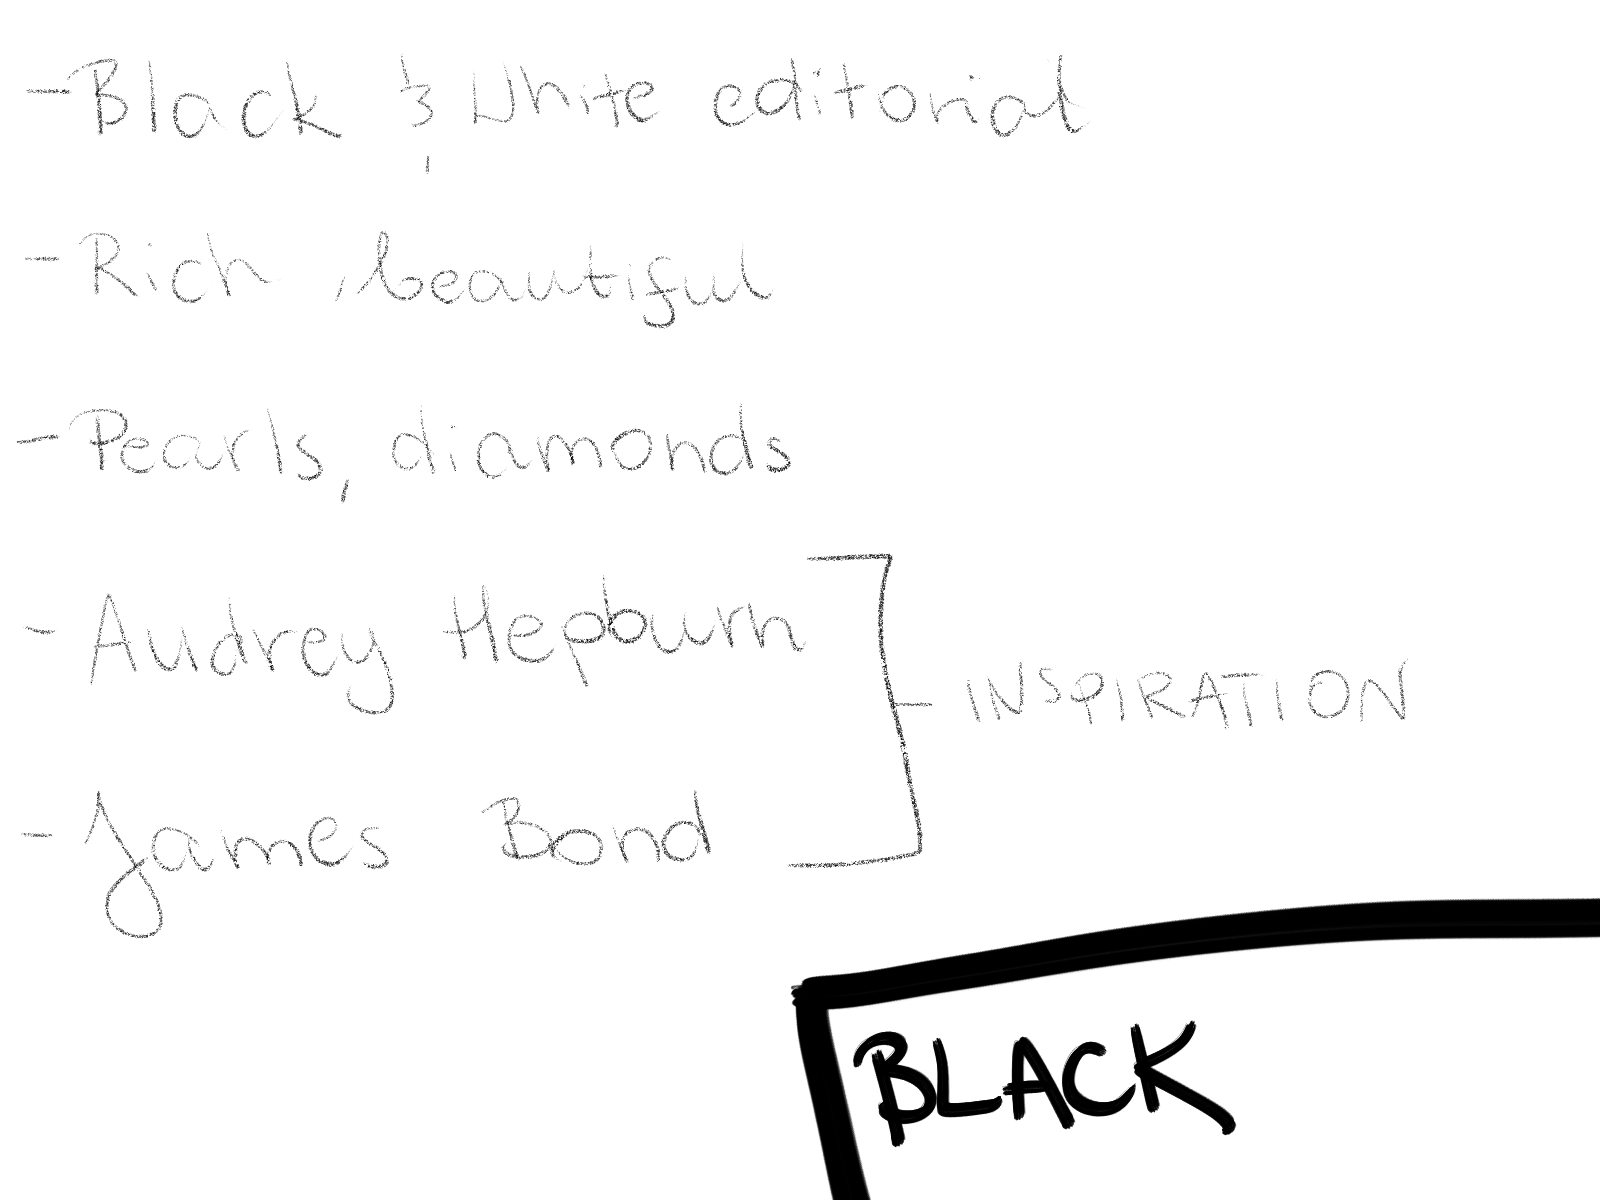 - Black & White editorial
- Rich, beautiful
- Pearls, diamonds
- Audrey Hepburn
- James Bond
- INSPIRATION
BLACK